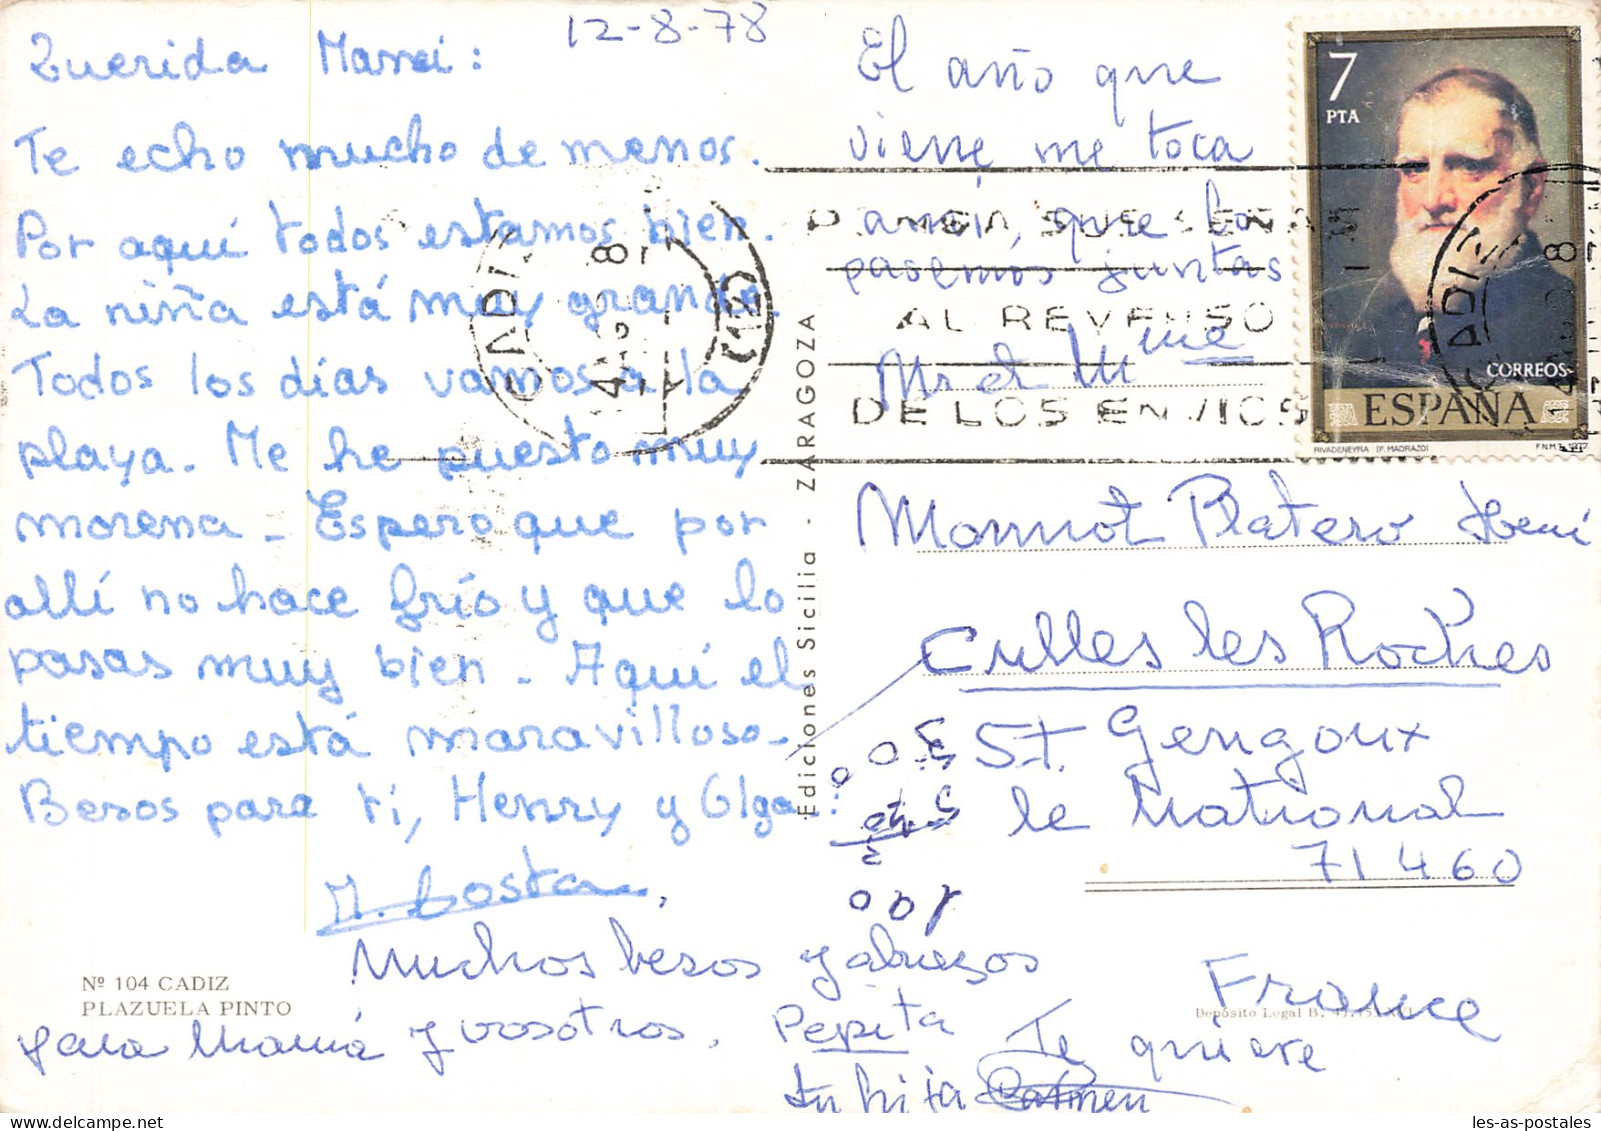 12-8-78
Querida Mamei:
Te echo mucho de menos.
Por aquí todos estamos bien.
La niña está muy grande.
Todos los días vamos a la
playa. Me he puesto muy
morena - Espero que por
allí no hace frío y que lo
pasas muy bien - Aquí el
tiempo está maravilloso -
Besos para ti, Henry y Olga
M. Costa
Muchos besos y abrazos
para Mamá y vosotros. Pepita
Te quiere
tu hija Carmen
El año que
viene me toca
a mí, que lo
pasemos juntas
Mr et Mme
Monnot Platero
Culles les Roches
St. Gengoux
le National
71460
France
Nº 104 CADIZ
PLAZUELA PINTO
Ediciones Sicilia - ZARAGOZA
Depósito Legal B.
7
PTA
CORREOS
ESPAÑA
RIVADENEYRA (F. MADRAZO)
F.N.M.T.
CADIZ
PONGA SUS SEÑAS
AL REVERSO
DE LOS ENVIOS
CADIZ
les-as-postales